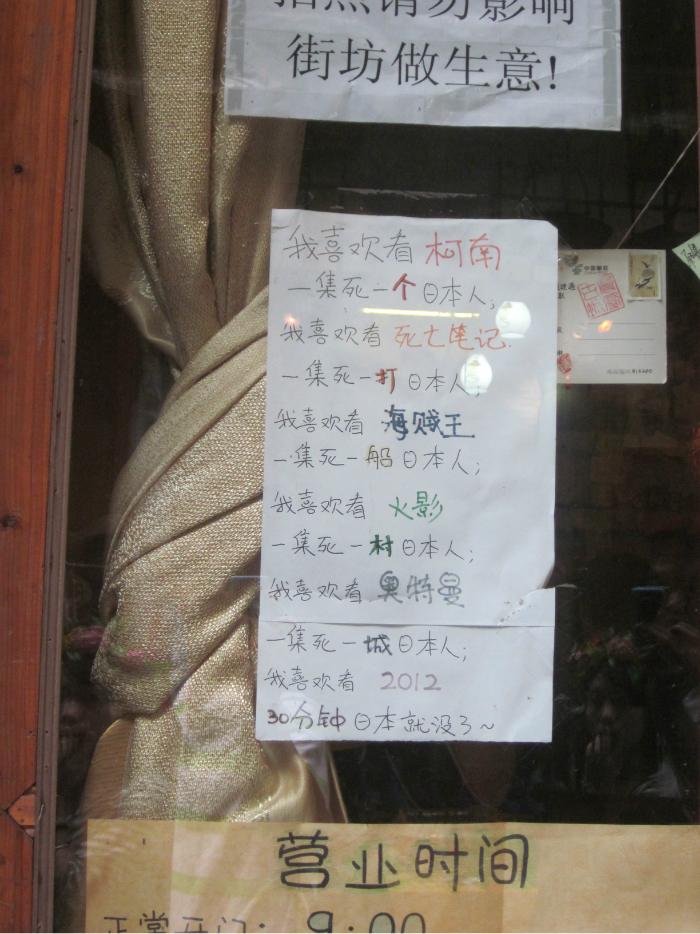 拍照请勿影响
街坊做生意!
我喜欢看 柯南
一集死一个日本人;
我喜欢看 死亡笔记
一集死一打日本人;
我喜欢看 海贼王
一集死一船日本人;
我喜欢看 火影
一集死一村日本人;
我喜欢看 奥特曼
一集死一城日本人;
我喜欢看 2012
30分钟日本就没了~
中国邮政
营业时间
正常开门: 9:00